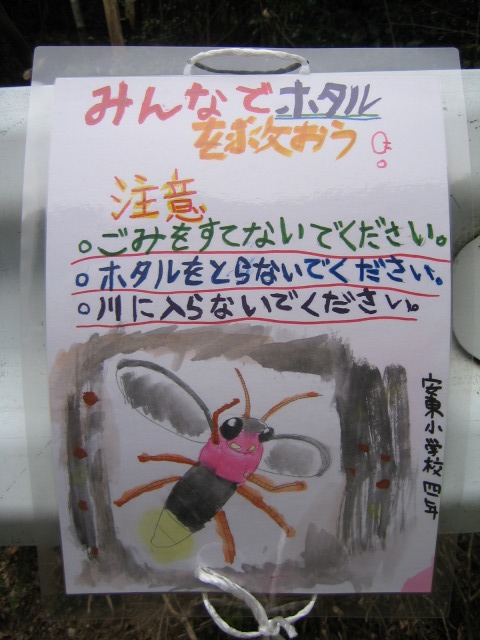 みんなでホタル
を救おう!
注意
○ごみをすてないでください。
○ホタルをとらないでください。
○川に入らないでください。
安東小学校四年